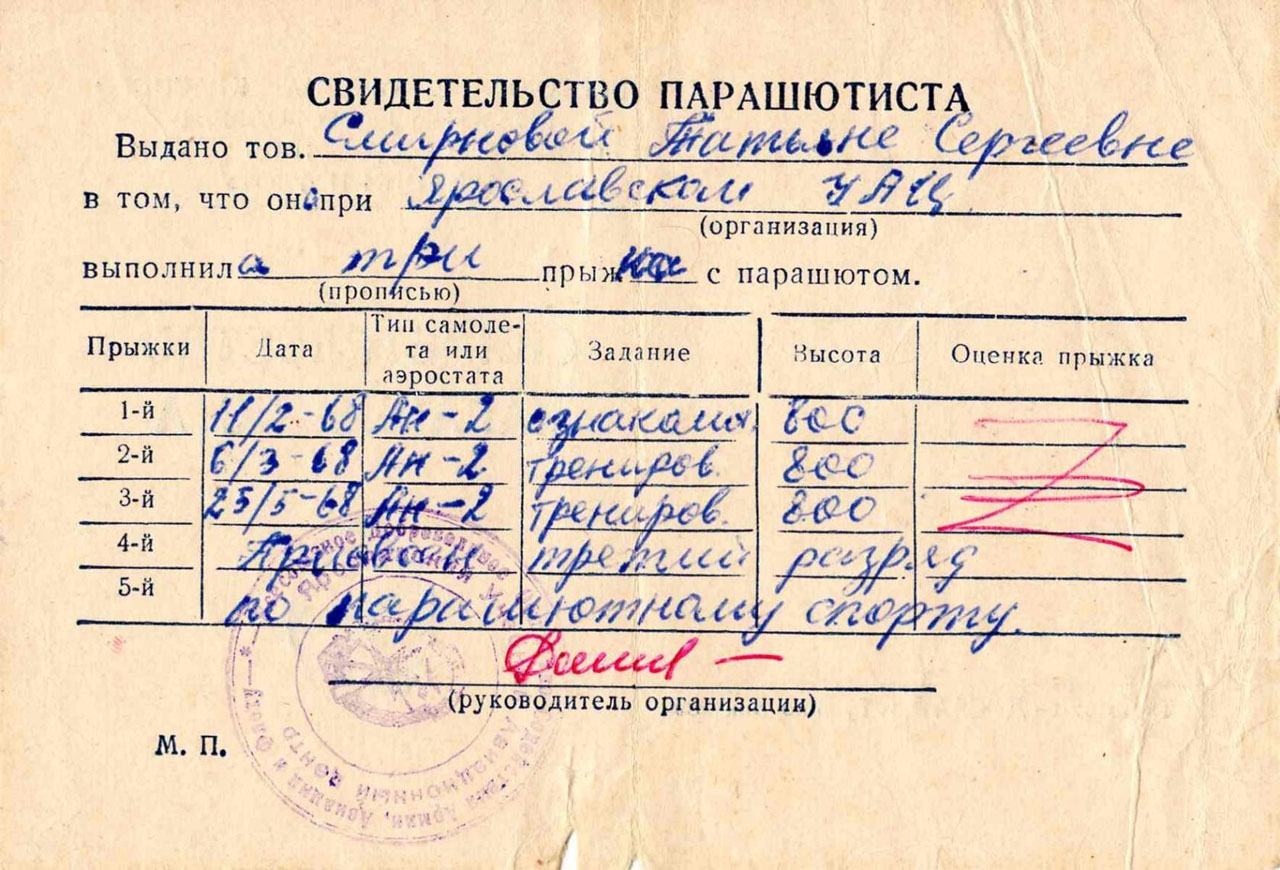 СВИДЕТЕЛЬСТВО ПАРАШЮТИСТА
Выдано тов. Смирновой Татьяне Сергеевне
в том, что она при Ярославском УАЦ
(организация)
выполнила три прыжка с парашютом.
(прописью)
Прыжки Дата Тип самоле-та или аэростата Задание Высота Оценка прыжка
1-й 11/2-68 Ан-2 ознаком. 800
2-й 6/3-68 Ан-2 трениров. 800
3-й 25/5-68 Ан-2 трениров. 800
4-й Присвоен третий разряд
5-й по парашютному спорту.
(руководитель организации)
М. П.
Добровольное
Армии, Авиации и Флоту
Авиационный центр